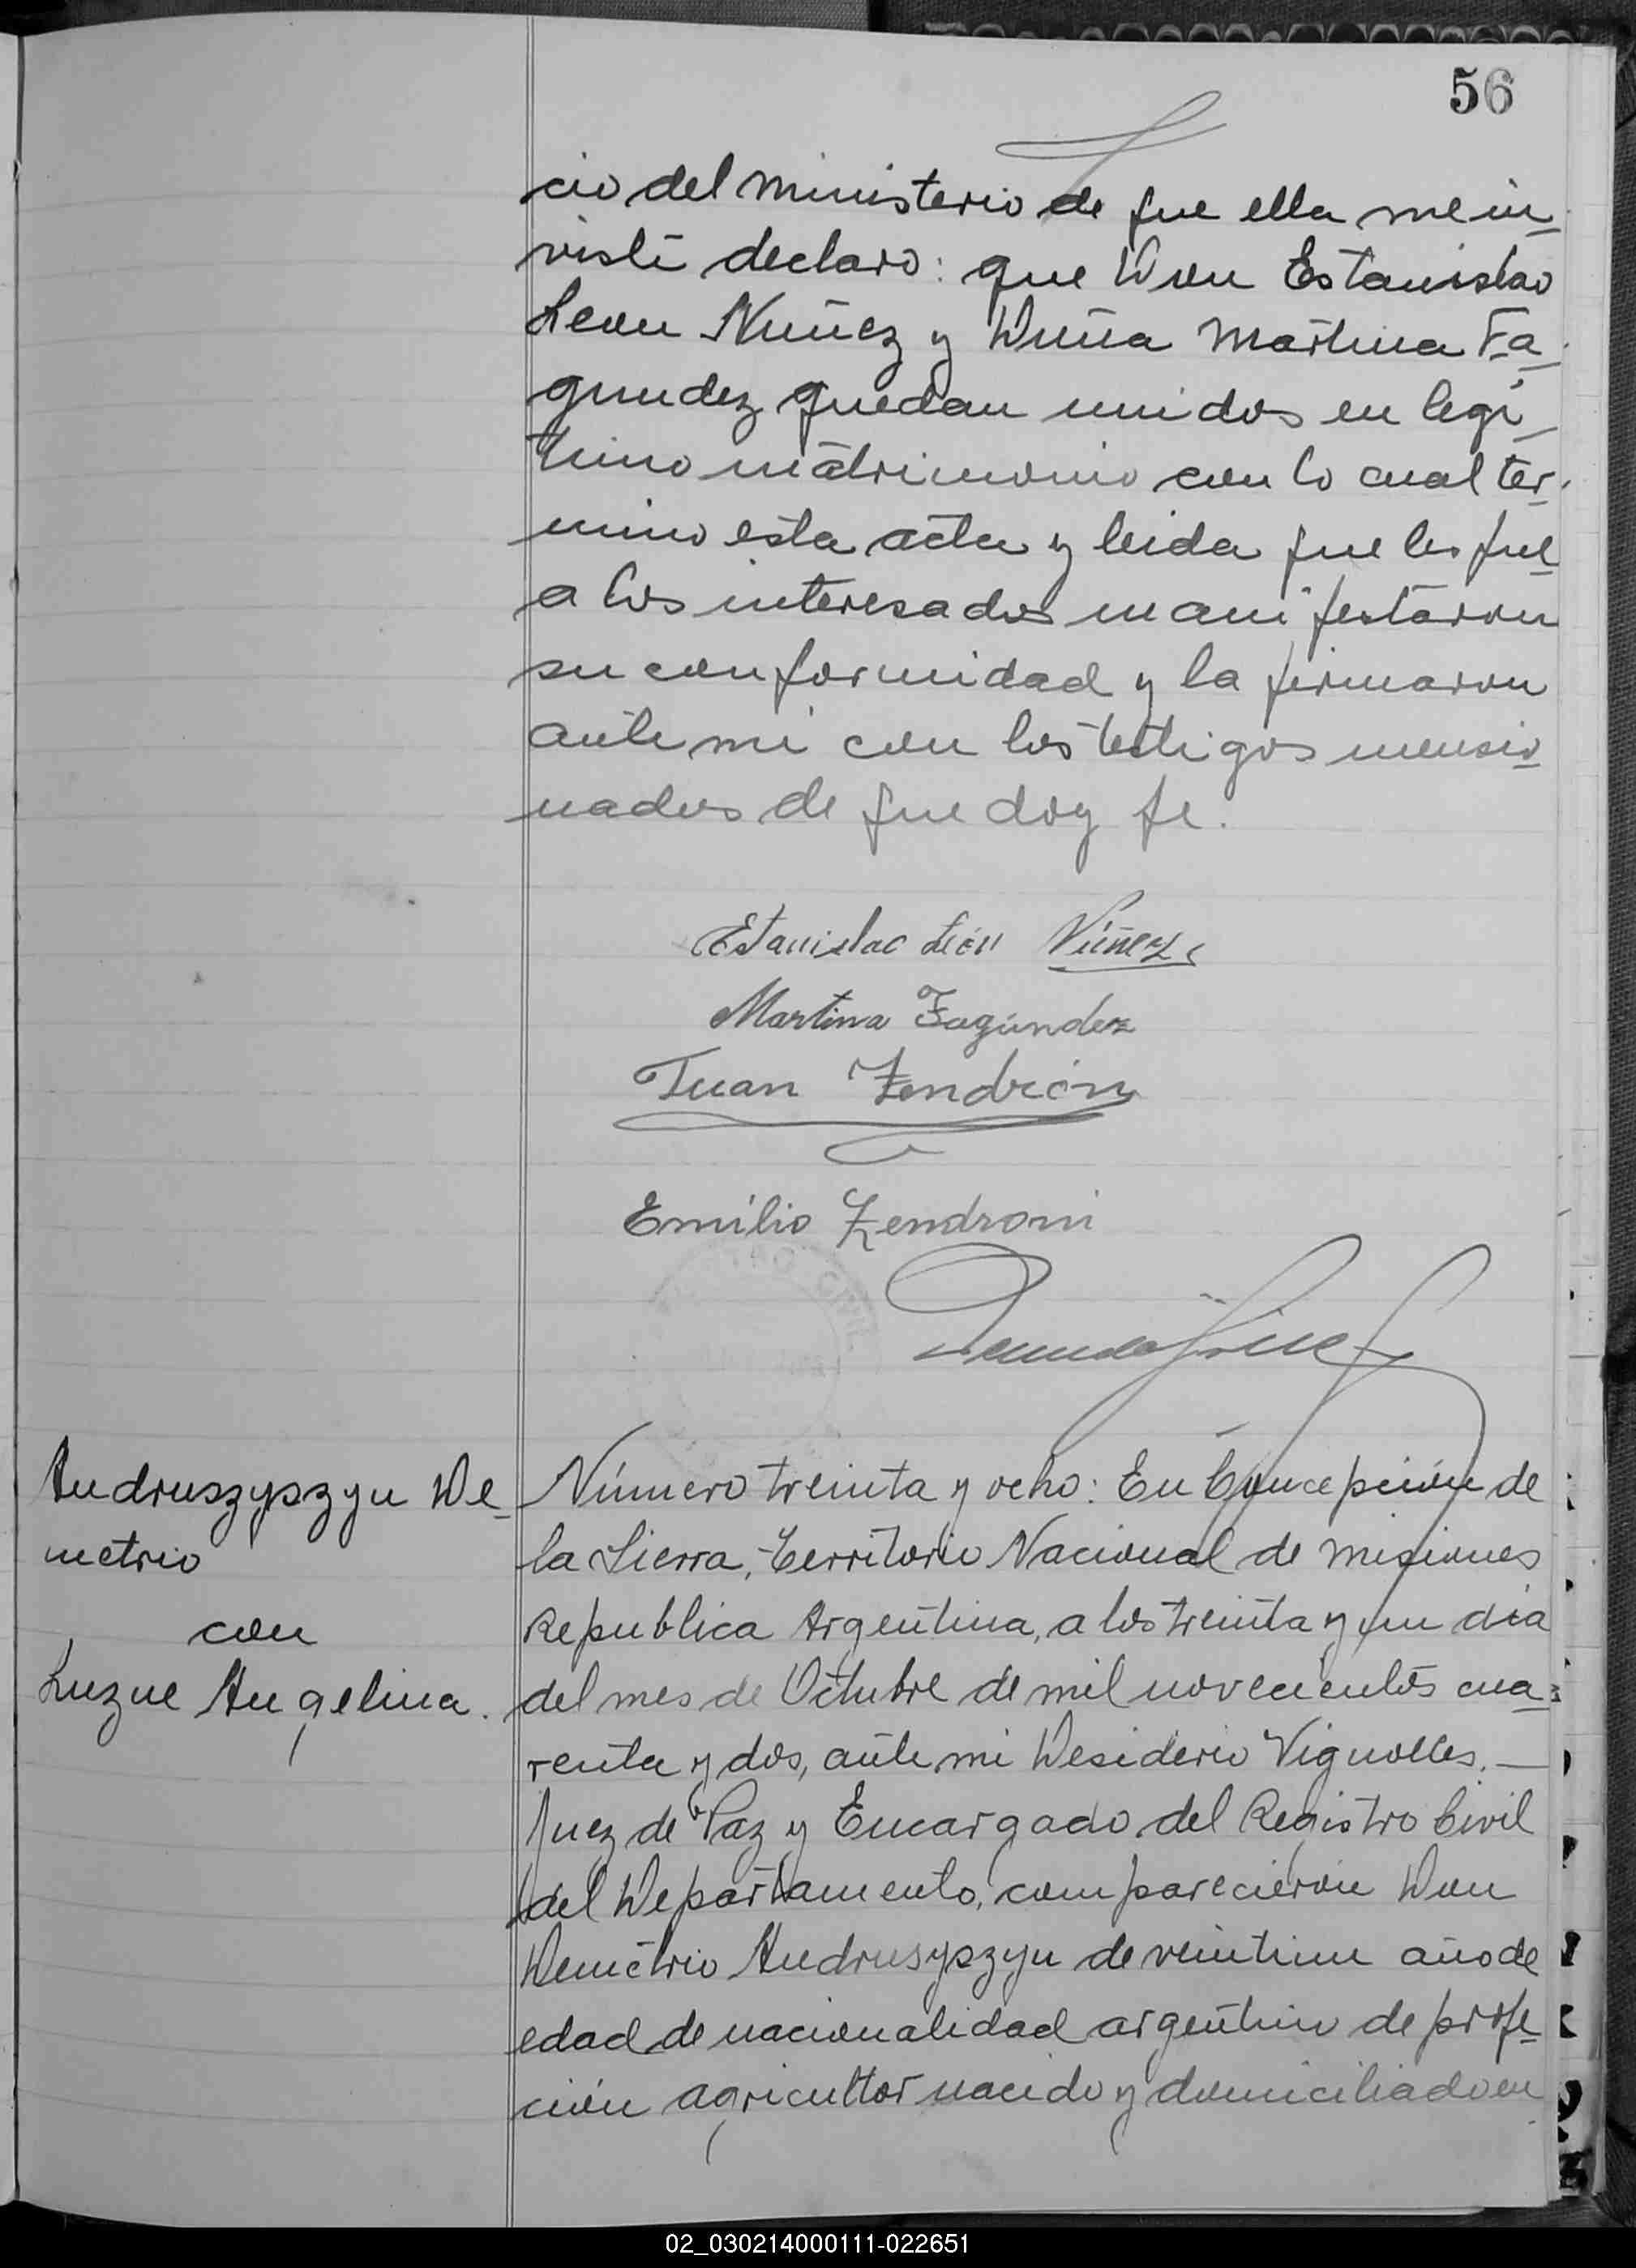 56
cio del ministerio de que ella me in-
visti declaro: que Don Estanislao
Leon Nuñez y Doña Martina Fa-
gundez quedan unidos en legi-
timo matrimonio con lo cual ter-
mino esta acta y leida que les fue
a los interesados manifestaron
su conformidad y la firmaron
ante mi con los testigos mensio-
nados de que doy fe.
Estanislao León Núñez
Martina Fagúndez
Juan Zendrón
Emilio Zendroni
REGISTRO CIVIL
Andruszyszyn De-
metrio
con
Luzne Angelina.
Número treinta y ocho: En Concepción de
la Sierra, Territorio Nacional de Misiones
Republica Argentina, a los treinta y un dia
del mes de Octubre de mil novecientos cua-
renta y dos, ante mi Desiderio Vignolles.—
Juez de Paz y Encargado del Registro Civil
del Departamento, comparecieron Don
Demetrio Andrusyszyn de veintiun año de
edad de nacionalidad argentino de profe-
ción agricultor nacido y domiciliado en
02_030214000111-022651